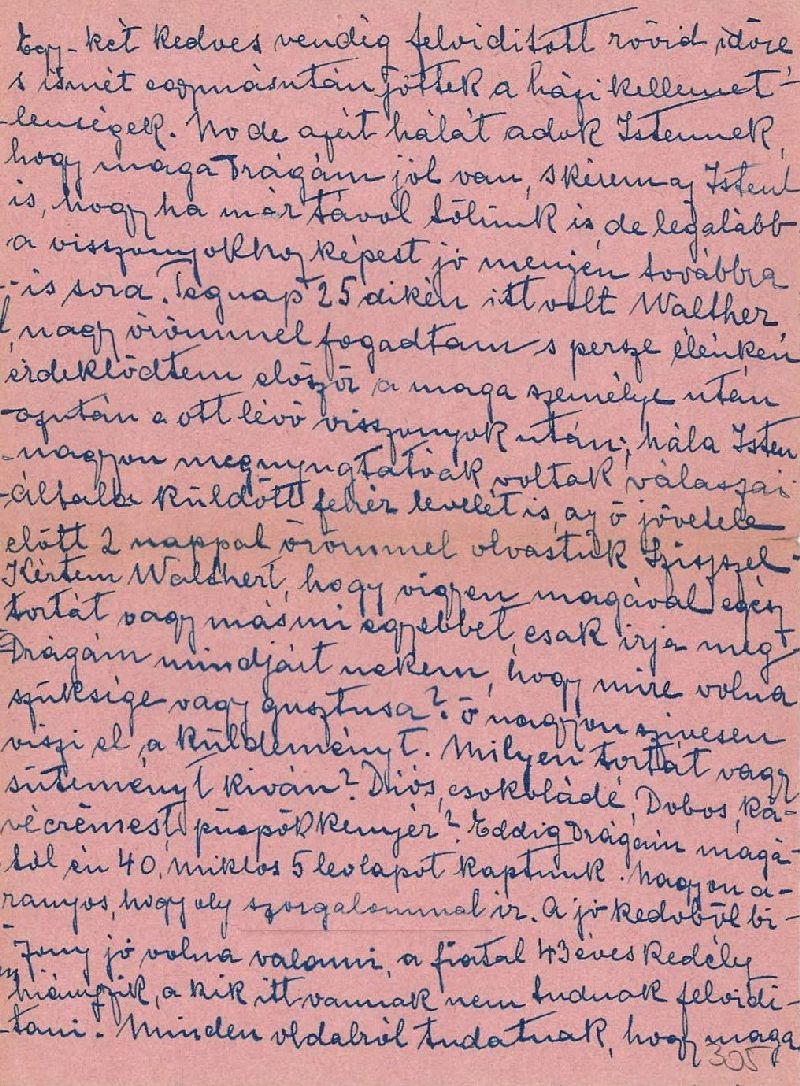 Egy-két kedves vendég felvidított rövid időre,
s ismét egymásután jöttek a házi kellemet-
lenségek. No de azért hálát adok Istennek,
hogy maga Drágám jól van, s kérem az Istent
is, hogy ha már távol tőlünk is de legalább
a viszonyokhoz képest jó menjen továbbra
is sora. Tegnap 25dikén itt volt Walther
nagy örömmel fogadtam s persze élénken
érdeklődtem először a maga személye után
azután a ott lévő visszonyok után; hála Isten
nagyon megnyugtatóak voltak válaszai
általa küldött fehér levelét is, az ő jövetele
előtt 2 nappal örömmel olvastuk
Kértem Walthert, hogy vigyen magával egész
tortát vagy másmi egyebbet, csak írja meg
Drágám mindjárt nekem, hogy mire volna
szüksége vagy gusztusa? ő nagyon szívesen
viszi el a küldeményt. Milyen tortát vagy
süteményt kíván? Diós, csokoládé, Dobos, ká-
vécrémest, püspökkenyér? Eddig Drágám magá-
tól én 40, Miklos 5 levlapot kaptunk. Nagyon a-
ranyos, hogy oly szorgalommal ír. A jó kedvből bi-
zony jó volna valami, a fiatal 43 éves kedély
hiányzik, a kik itt vannak nem tudnak felvidí-
tani. Minden oldalról tudatnak, hogy maga
305